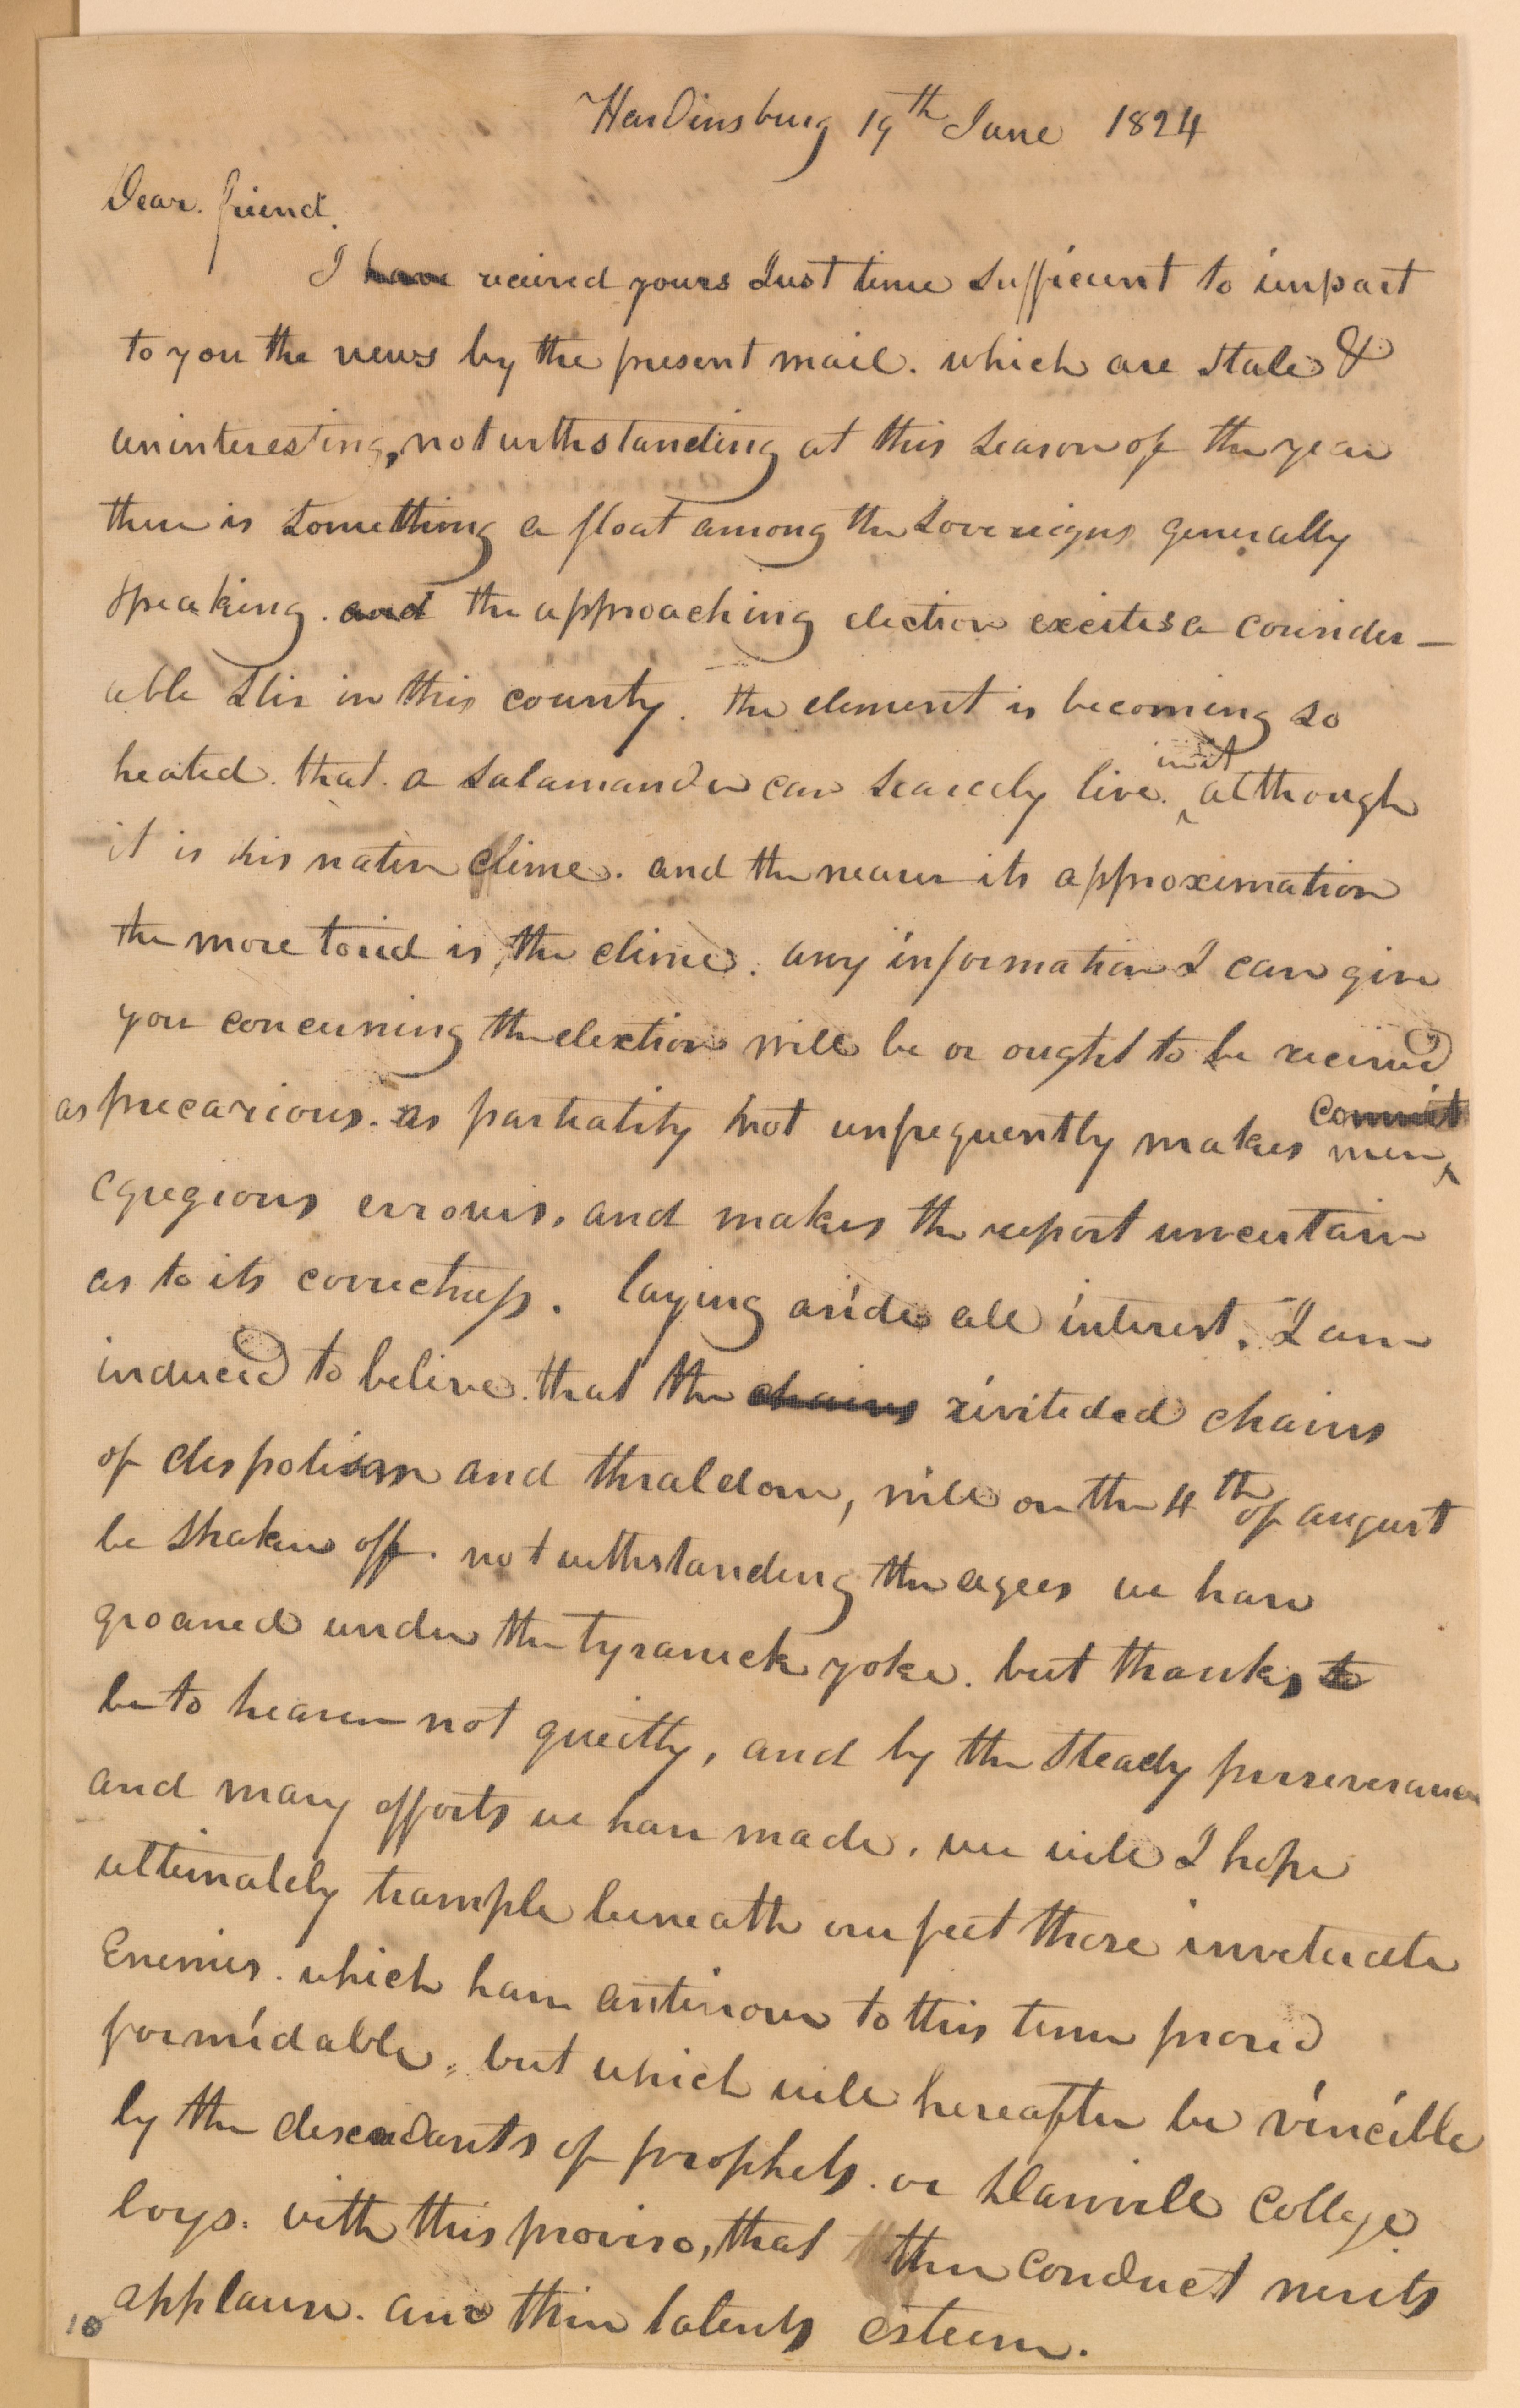 Hardinsburg 19th June 1824
Dear. friend.
I have recived yours Just time sufficient to impart
to you the news by the present mail. which are stale &
uninteresting, notwithstanding at this season of the year
there is something a float among the Sovereigns generally
speaking. and the approaching election excites a consider-
able stir in this county. the element is becoming so
heated. that a salamander can scarcely live. in it although
it is his native clime. and the nearer its approximation
the more torrid is the clime. any information I can give
you concerning the election will be or ought to be recived
as precarious. as partiality not unfrequently makes men commit
egregious errours, and makes the report uncertain
as to its correctness. laying aside all interest. I am
induced to belive. that the chains riviteded chains
of despotism and thraldom, will on the 4th of august
be shaken off. notwithstanding the agees we have
groaned under the tyranick yoke. but thanks to
be to heaven not quietly, and by the steady perseverance
and many efforts we have made. we will I hope
ultimately trample beneath our feet those inveterate
Enemies. which have anterior to this time proved
formidable, but which will hereafter be vincible
by the descendants of prophets. or Danville College
boys. with this proviso, that their conduct merits
applause. and their talents esteem.
10